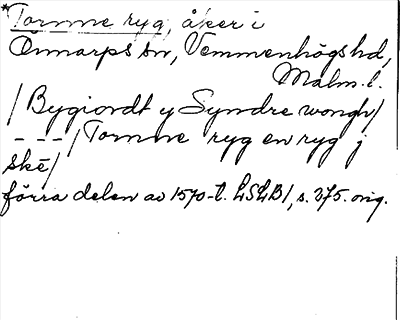 *Tornne ryg, åker i
Önnarps sn, Vemmenhögs hd,
Malm. l.
/Bygiordt y Syndre wongh/
- - -/Tornne ryg en ryg j
skē/
förra delen av 1570-t. LSLB1, s. 275. orig.